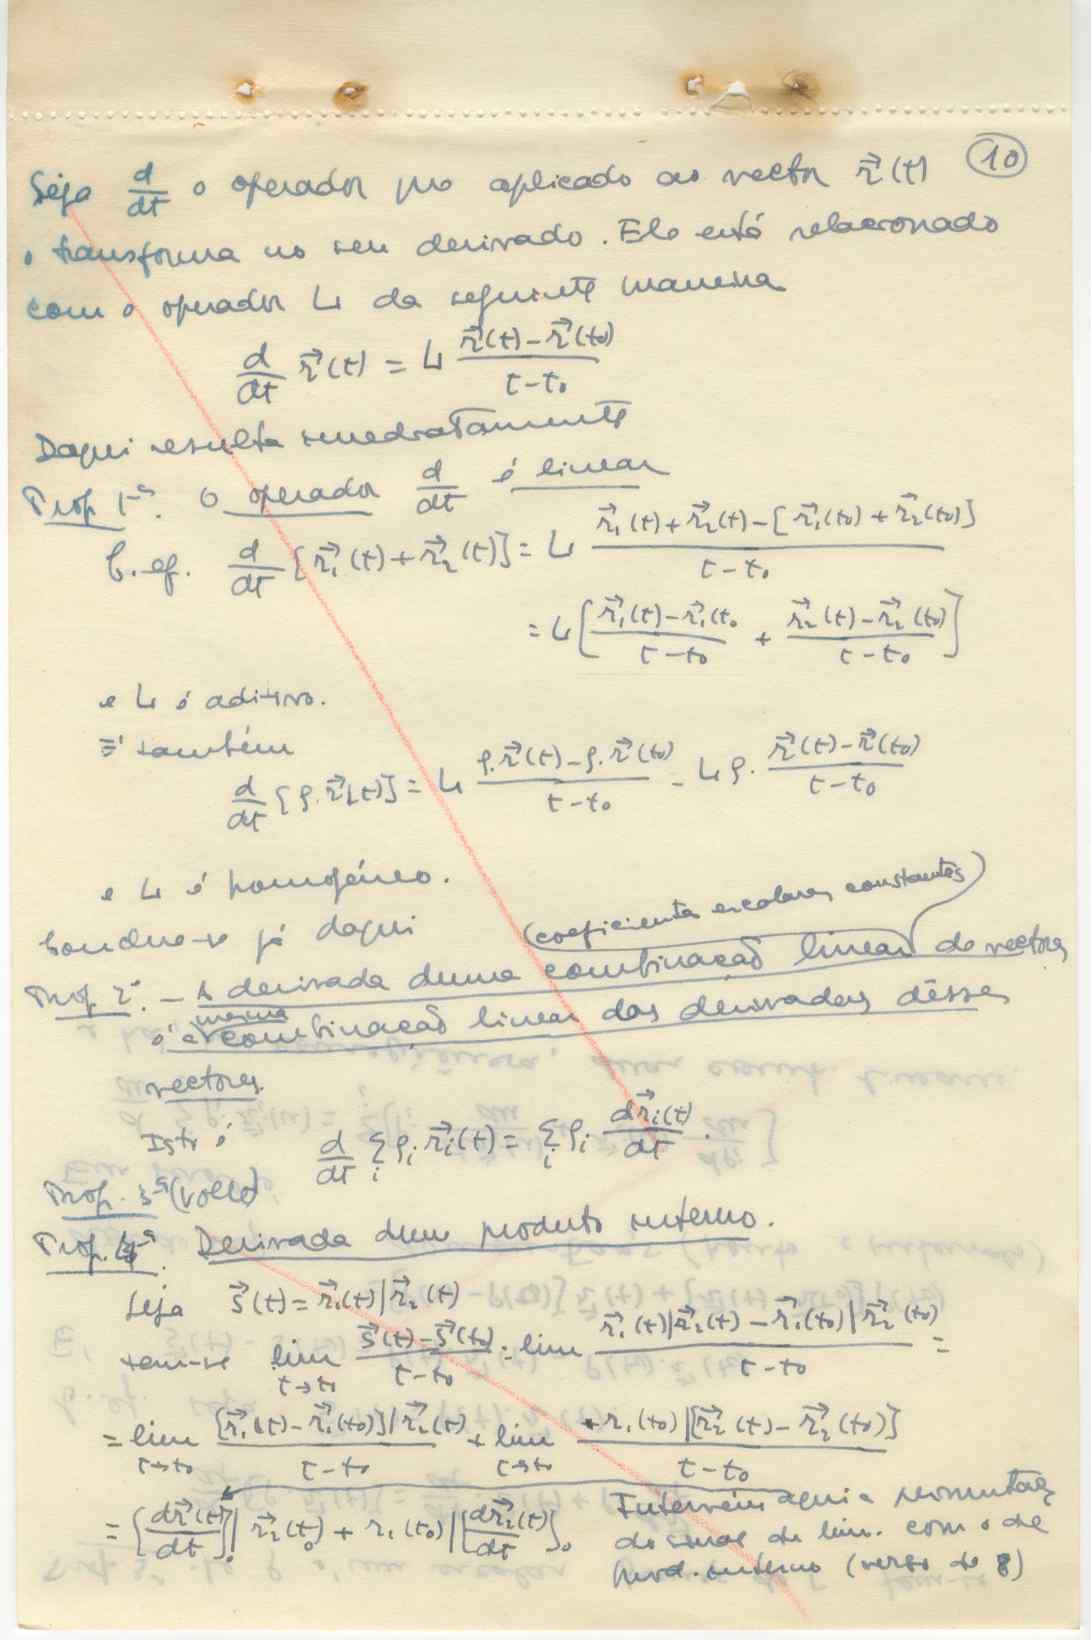 10
Seja d/dt o operador que aplicado ao vector r⃗(t)
o transforma no seu derivado. Ele está relacionado
com o operador L da seguinte maneira
d/dt r⃗(t) = L (r⃗(t) - r⃗(t₀))/(t-t₀)
Daqui resulta imediatamente
Prop 1ª. O operador d/dt é linear
C. ef. d/dt [r⃗₁(t) + r⃗₂(t)] = L (r⃗₁(t) + r⃗₂(t) - [r⃗₁(t₀) + r⃗₂(t₀)])/(t-t₀)
= L [(r⃗₁(t) - r⃗₁(t₀)/(t-t₀) + (r⃗₂(t) - r⃗₂(t₀))/(t-t₀)]
e L é aditivo.
E também
d/dt [ρ.r⃗(t)] = L (ρ.r⃗(t) - ρ.r⃗(t₀))/(t-t₀) = L ρ. (r⃗(t) - r⃗(t₀))/(t-t₀)
e L é homogéneo.
Conclue-se já daqui
(coeficientes escalares constantes)
Prop 2ª. - A derivada duma combinação linear de vectores
é a mesma combinação linear das derivadas dêsses
vectores.
Isto é d/dt Σᵢ ρᵢ r⃗ᵢ(t) = Σᵢ ρᵢ dr⃗ᵢ(t)/dt.
Prop. 3ª (volte)
Prop. 4ª. Derivada dum produto interno.
Seja s⃗(t) = r⃗₁(t)|r⃗₂(t)
tem-se lim t→t₀ (s⃗(t) - s⃗(t₀))/(t-t₀) = lim (r⃗₁(t)|r⃗₂(t) - r⃗₁(t₀)|r⃗₂(t₀))/(t-t₀) =
= lim t→t₀ ([r⃗₁(t) - r⃗₁(t₀)]|r⃗₂(t))/(t-t₀) + lim t→t₀ (r₁(t₀)|[r⃗₂(t) - r⃗₂(t₀)])/(t-t₀)
= [dr⃗(t)/dt]₀ | r⃗₂(t₀) + r₁(t₀) | [dr⃗₂(t)/dt]₀
Intervém aqui a permutaç.
do sinal de lim. com o de
prod. interno (verso de 8)